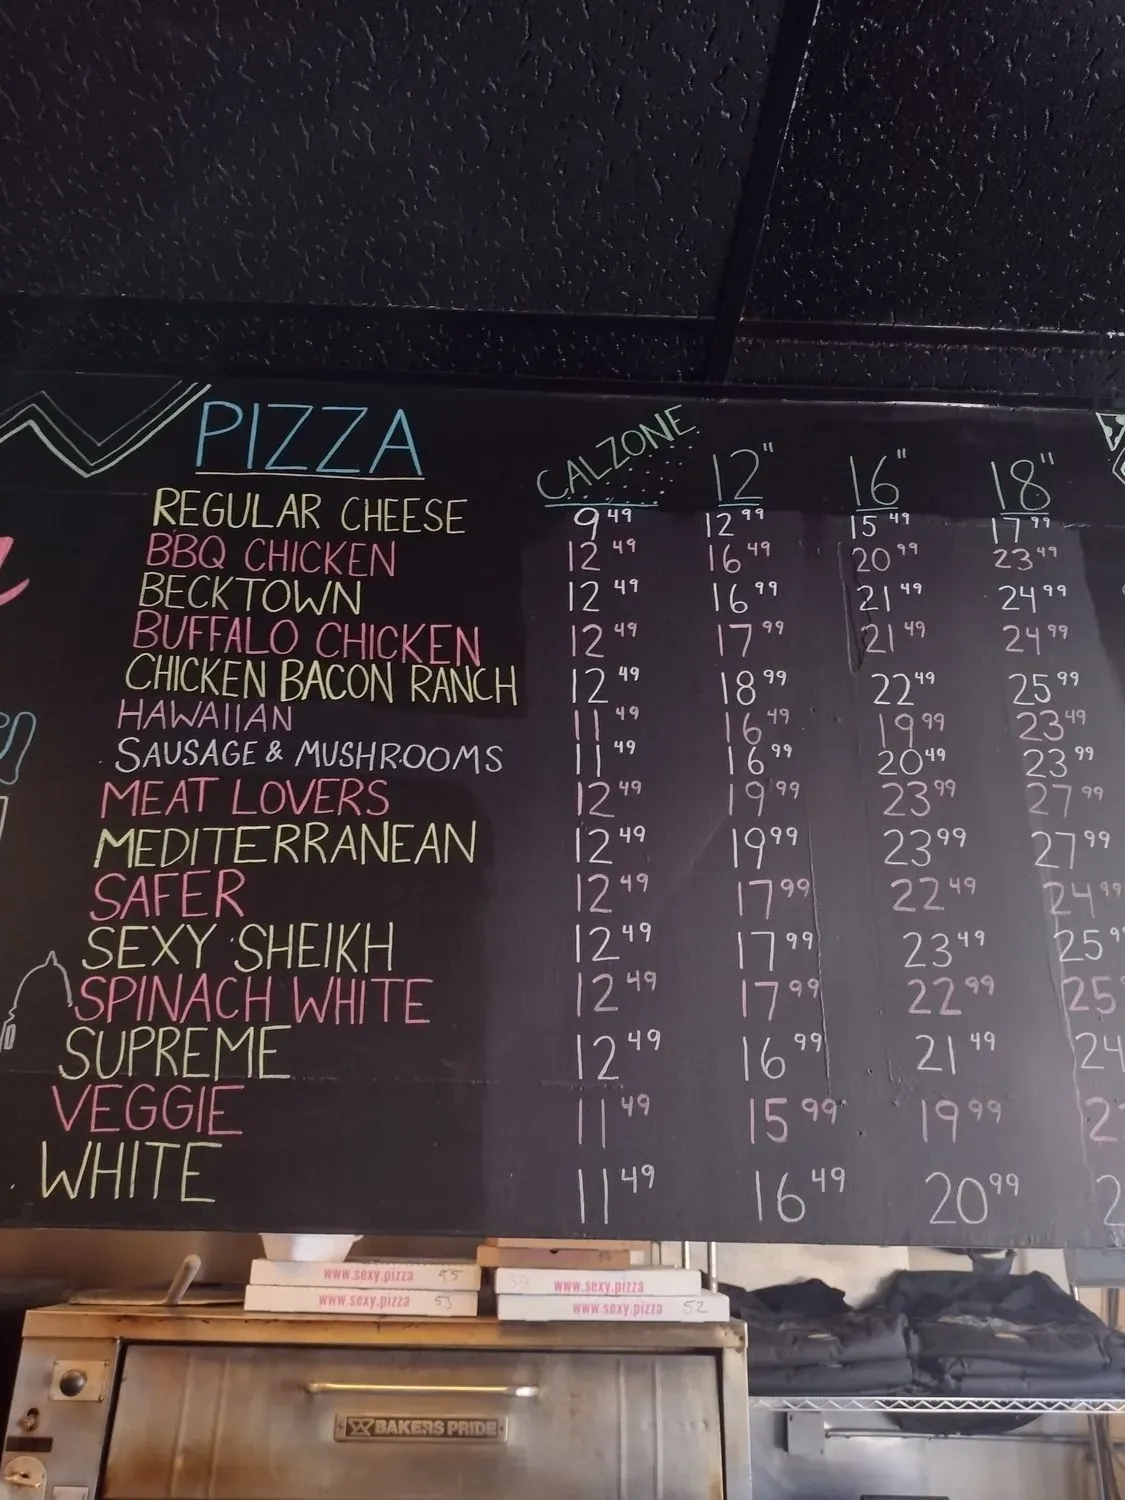 PIZZA CALZONE 12" 16" 18"
REGULAR CHEESE 9 49 12 99 15 49 17 99
BBQ CHICKEN 12 49 16 49 20 99 23 49
BECKTOWN 12 49 16 99 21 49 24 99
BUFFALO CHICKEN 12 49 17 99 21 49 24 99
CHICKEN BACON RANCH 12 49 18 99 22 49 25 99
HAWAIIAN 11 49 16 49 19 99 23 49
SAUSAGE & MUSHROOMS 11 49 16 99 20 49 23 99
MEAT LOVERS 12 49 19 99 23 99 27 99
MEDITERRANEAN 12 49 19 99 23 99 27 99
SAFER 12 49 17 99 22 49 24 99
SEXY SHEIKH 12 49 17 99 23 49 25 9
SPINACH WHITE 12 49 17 99 22 99 25
SUPREME 12 49 16 99 21 49 24
VEGGIE 11 49 15 99 19 99 2
WHITE 11 49 16 49 20 99 2
www.sexy.pizza
www.sexy.pizza 53
www.sexy.pizza
www.sexy.pizza 52
BAKERS PRIDE